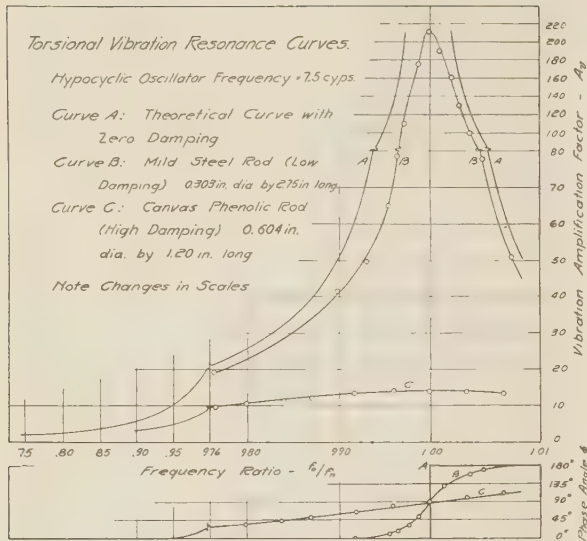 Torsional Vibration Resonance Curves.
Hypocyclic Oscillator Frequency = 7.5 cyps.
Curve A: Theoretical Curve with
Zero Damping
Curve B: Mild Steel Rod (Low
Damping) 0.303 in. dia by 2.75 in long
Curve C: Canvas Phenolic Rod
(High Damping) 0.604 in.
dia. by 1.20 in. long
Note Changes in Scales
A
B
B
A
C
220
200
180
160
140
120
100
80
70
60
50
40
30
20
10
0
Vibration Amplification Factor - Aν
.75 .80 .85 .90 .95 .976 .980 .990 1.00 1.01
Frequency Ratio - fo/fn
A
B
C
180°
135°
90°
45°
0°
Phase Angle ϕ